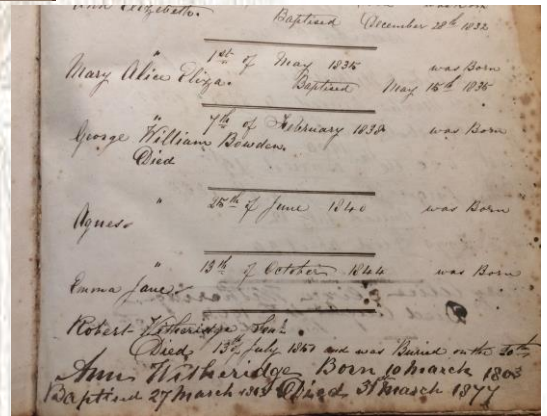 Ann Elizabeth.
Baptised December 28th 1832
" 1st of May 1835 was Born
Mary Alice Eliza. Baptised May 15th 1835
" 7th of February 1838 was Born
George William Bowden.
Died
" 25th of June 1840 was Born
Agnes
" 13th of October 1844 was Born
Emma Jane
Robert Witheridge Senr.
Died 13th July 1857 and was Buried on the 20th
Ann Witheridge Born 10 March 1803
Baptised 27 March 1803 Died 31 March 1877